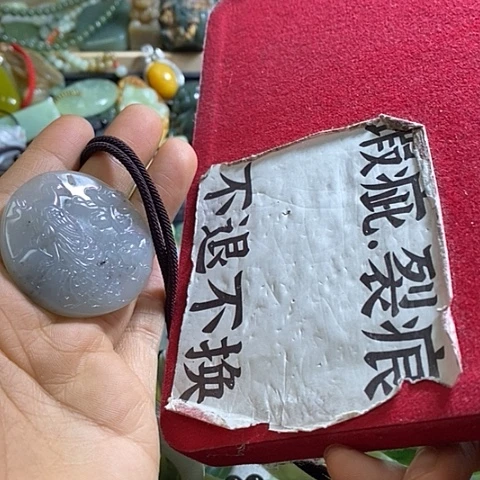 瑕疵.裂痕
不退不换